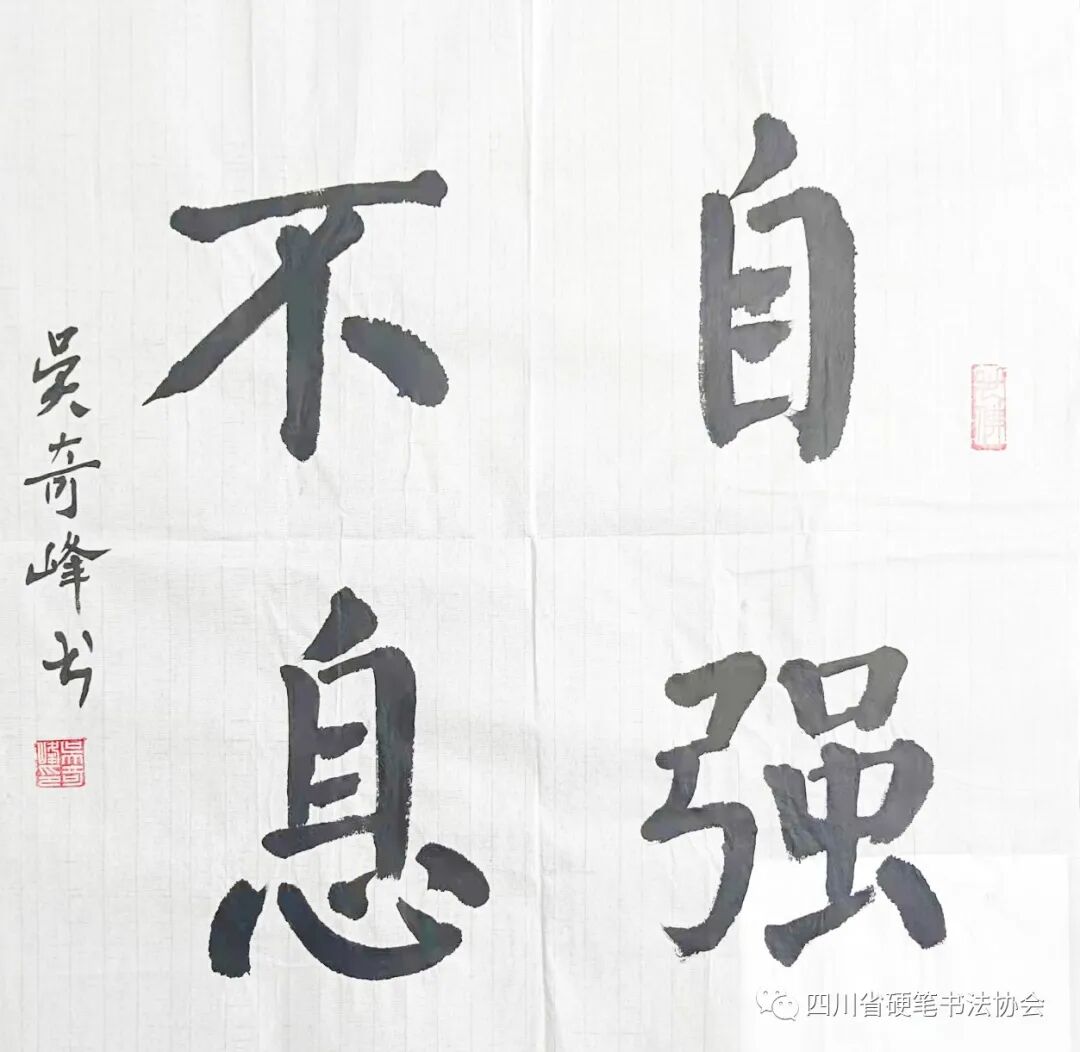 自强
不息
吴奇峰书
吴奇峰印
四川省硬笔书法协会